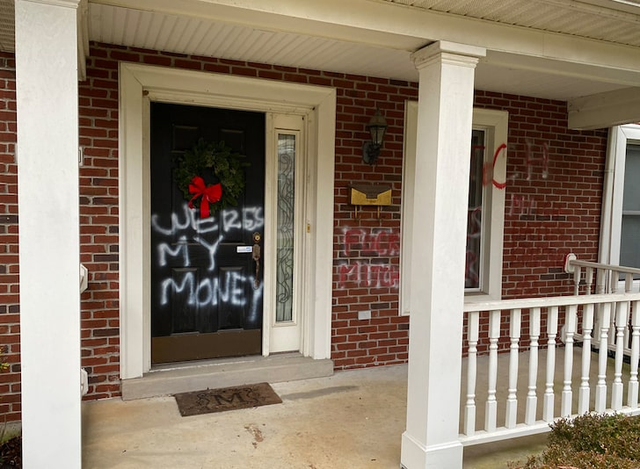 WERES
MY
MONEY
FUCK
MITCH
CH
M